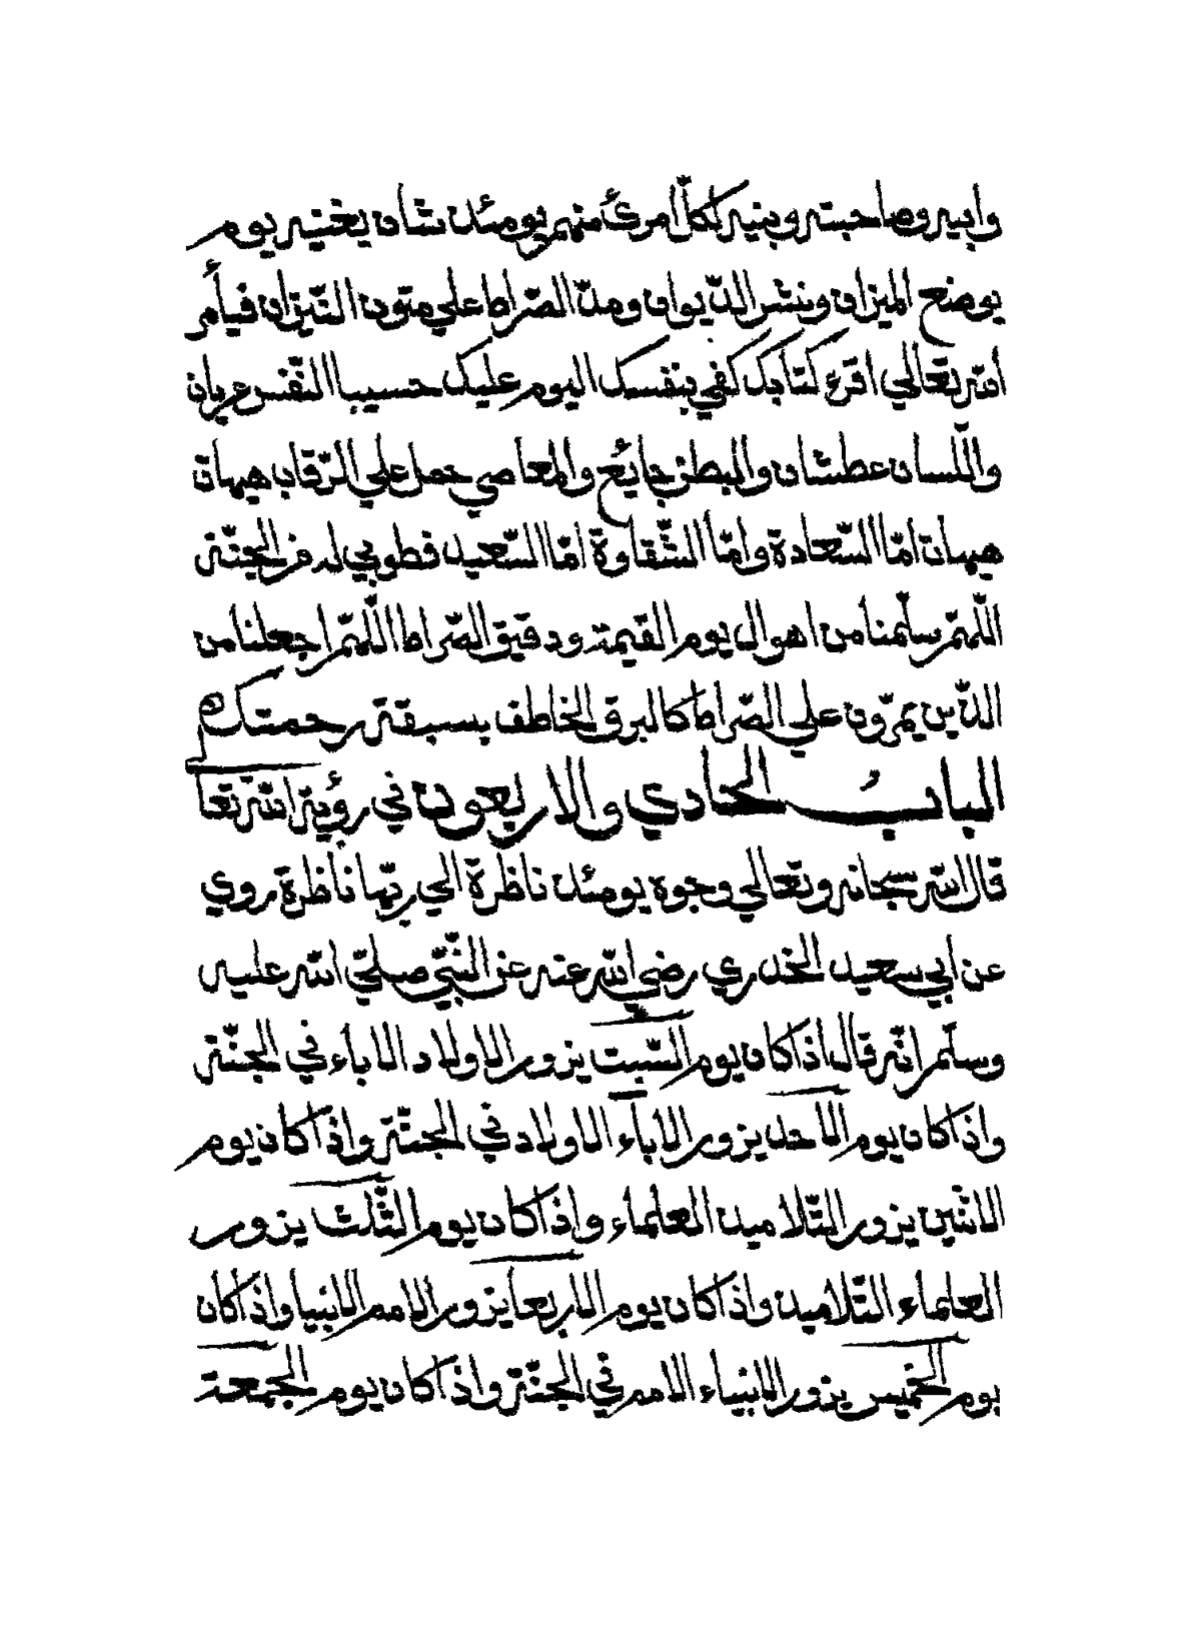 وابيه وصاحبته وبنيه لكلّ امرئ منهم يومئذ شان يغنيه يوم
يوضع الميزان وينشر الدّيوان ومدّ الصّراط علي متون النّيران فيأمر
الله تعالي اقرء كتابك كفي بنفسك اليوم عليك حسيبا النّفس عريان
واللّسان عطشان والبطن جايع والمعاصي حمل علي الرّقاب هيهات
هيهات امّا السّعادة وامّا الشّقاوة امّا السّعيد فطوبي له من الجنّة
اللّهمّ سلّمنا من اهوال يوم القيمة ودقيق الصّراط اللّهمّ اجعلنا من
الذّين يمرّون علي الصّراط كالبرق الخاطف بسبقة رحمتك
الباب الحادي والاربعون في رؤية الله تعالي
قال الله سبحانه وتعالي وجوه يومئذ ناظرة الي ربّها ناظرة روي
عن ابي سعيد الخدري رضي الله عنه عن النّبيّ صلّي الله عليه
وسلّم انّه قال اذا كان يوم السّبت يزور الاولاد الاباء في الجنّة
واذا كان يوم الاحد يزور الاباء الاولاد في الجنّة واذا كان يوم
الاثنين يزور التّلاميذ العلماء واذا كان يوم الثّلث يزور
العلماء التّلاميذ واذا كان يوم الاربعا يزور الامم الانبيا واذا كان
يوم الخميس يزور الانبياء الامم في الجنّة واذا كان يوم الجمعة